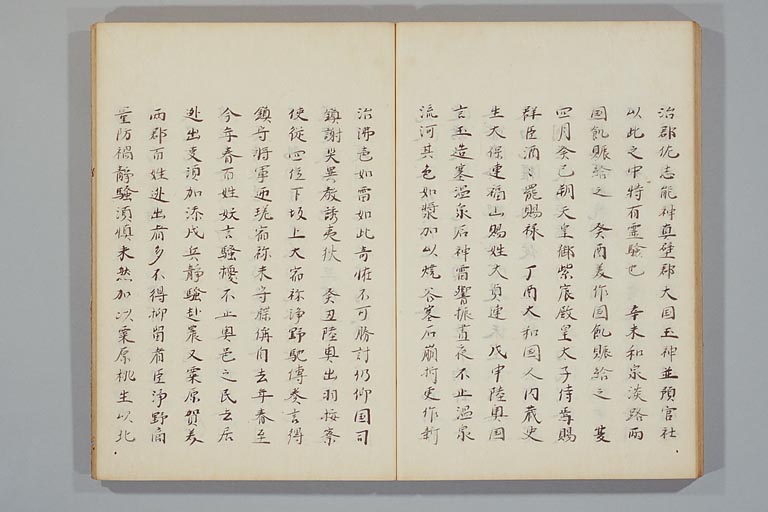 治郡佐志能神真壁郡大国玉神並預官社
以此之中特有霊驗也　辛未和泉淡路両
国飢賑給之　癸酉美作国飢賑給之　夏
四月癸巳朔天皇御紫宸殿皇太子侍焉賜
群臣酒罷賜禄　丁酉大和国人内蔵史
生大保連福山賜姓大貞連　戊申陸奥国
言玉造塞温泉石神雷響振晝夜不止温泉
流河其色如漿加以燒谷塞石崩折更作新
沼沸色如雷如此奇恠不可勝計仍仰国司
鎮謝災異教誘夷狄　癸丑陸奥出羽按察
使従四位下坂上大宿祢浄野馳傳奏言得
鎮守将軍匝瑳宿祢末守牒偁自去年春至
今年春百姓妖言騒擾不止奥邑之民去居
逃出事須加添戍兵静騒赴農又栗原賀美
両郡百姓逃出者多不得抑留者臣浄野商
量防禍静騒須慎未然加以栗原桃生以北